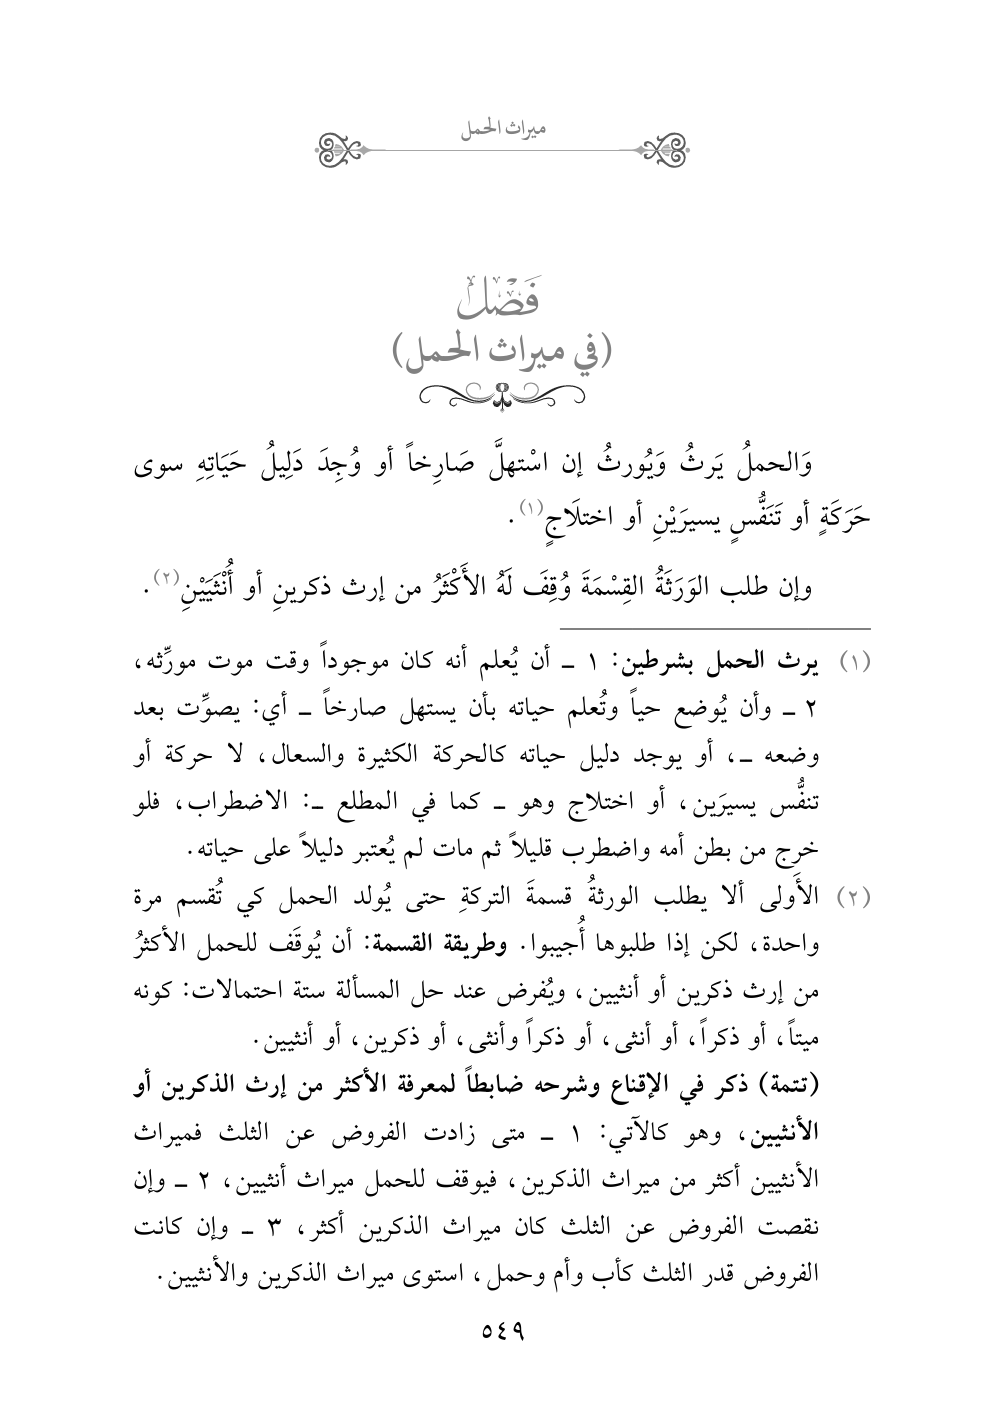 ميراث الحمل
فَصْلٌ
(في ميراث الحمل)
وَالحملُ يَرثُ وَيُورثُ إن اسْتهلَّ صَارِخاً أو وُجِدَ دَلِيلُ حَيَاتِهِ سوى
حَرَكَةٍ أو تَنَفُّسٍ يسيرَيْنِ أو اختلَاجٍ(١).
وإن طلب الوَرَثَةُ القِسْمَةَ وُقِفَ لَهُ الأَكْثَرُ من إرث ذكرينِ أو أُنْثَيَيْنِ(٢).
(١) يرث الحمل بشرطين: ١ ـ أن يُعلم أنه كان موجوداً وقت موت مورِّثه،
٢ ـ وأن يُوضع حياً وتُعلم حياته بأن يستهل صارخاً ـ أي: يصوِّت بعد
وضعه ـ، أو يوجد دليل حياته كالحركة الكثيرة والسعال، لا حركة أو
تنفُّس يسيرَين، أو اختلاج وهو ـ كما في المطلع ـ: الاضطراب، فلو
خرج من بطن أمه واضطرب قليلاً ثم مات لم يُعتبر دليلاً على حياته.
(٢) الأَولى ألا يطلب الورثةُ قسمةَ التركةِ حتى يُولد الحمل كي تُقسم مرة
واحدة، لكن إذا طلبوها أُجيبوا. وطريقة القسمة: أن يُوقَف للحمل الأكثرُ
من إرث ذكرين أو أنثيين، ويُفرض عند حل المسألة ستة احتمالات: كونه
ميتاً، أو ذكراً، أو أنثى، أو ذكراً وأنثى، أو ذكرين، أو أنثيين.
(تتمة) ذكر في الإقناع وشرحه ضابطاً لمعرفة الأكثر من إرث الذكرين أو
الأنثيين، وهو كالآتي: ١ ـ متى زادت الفروض عن الثلث فميراث
الأنثيين أكثر من ميراث الذكرين، فيوقف للحمل ميراث أنثيين، ٢ ـ وإن
نقصت الفروض عن الثلث كان ميراث الذكرين أكثر، ٣ ـ وإن كانت
الفروض قدر الثلث كأب وأم وحمل، استوى ميراث الذكرين والأنثيين.
٥٤٩